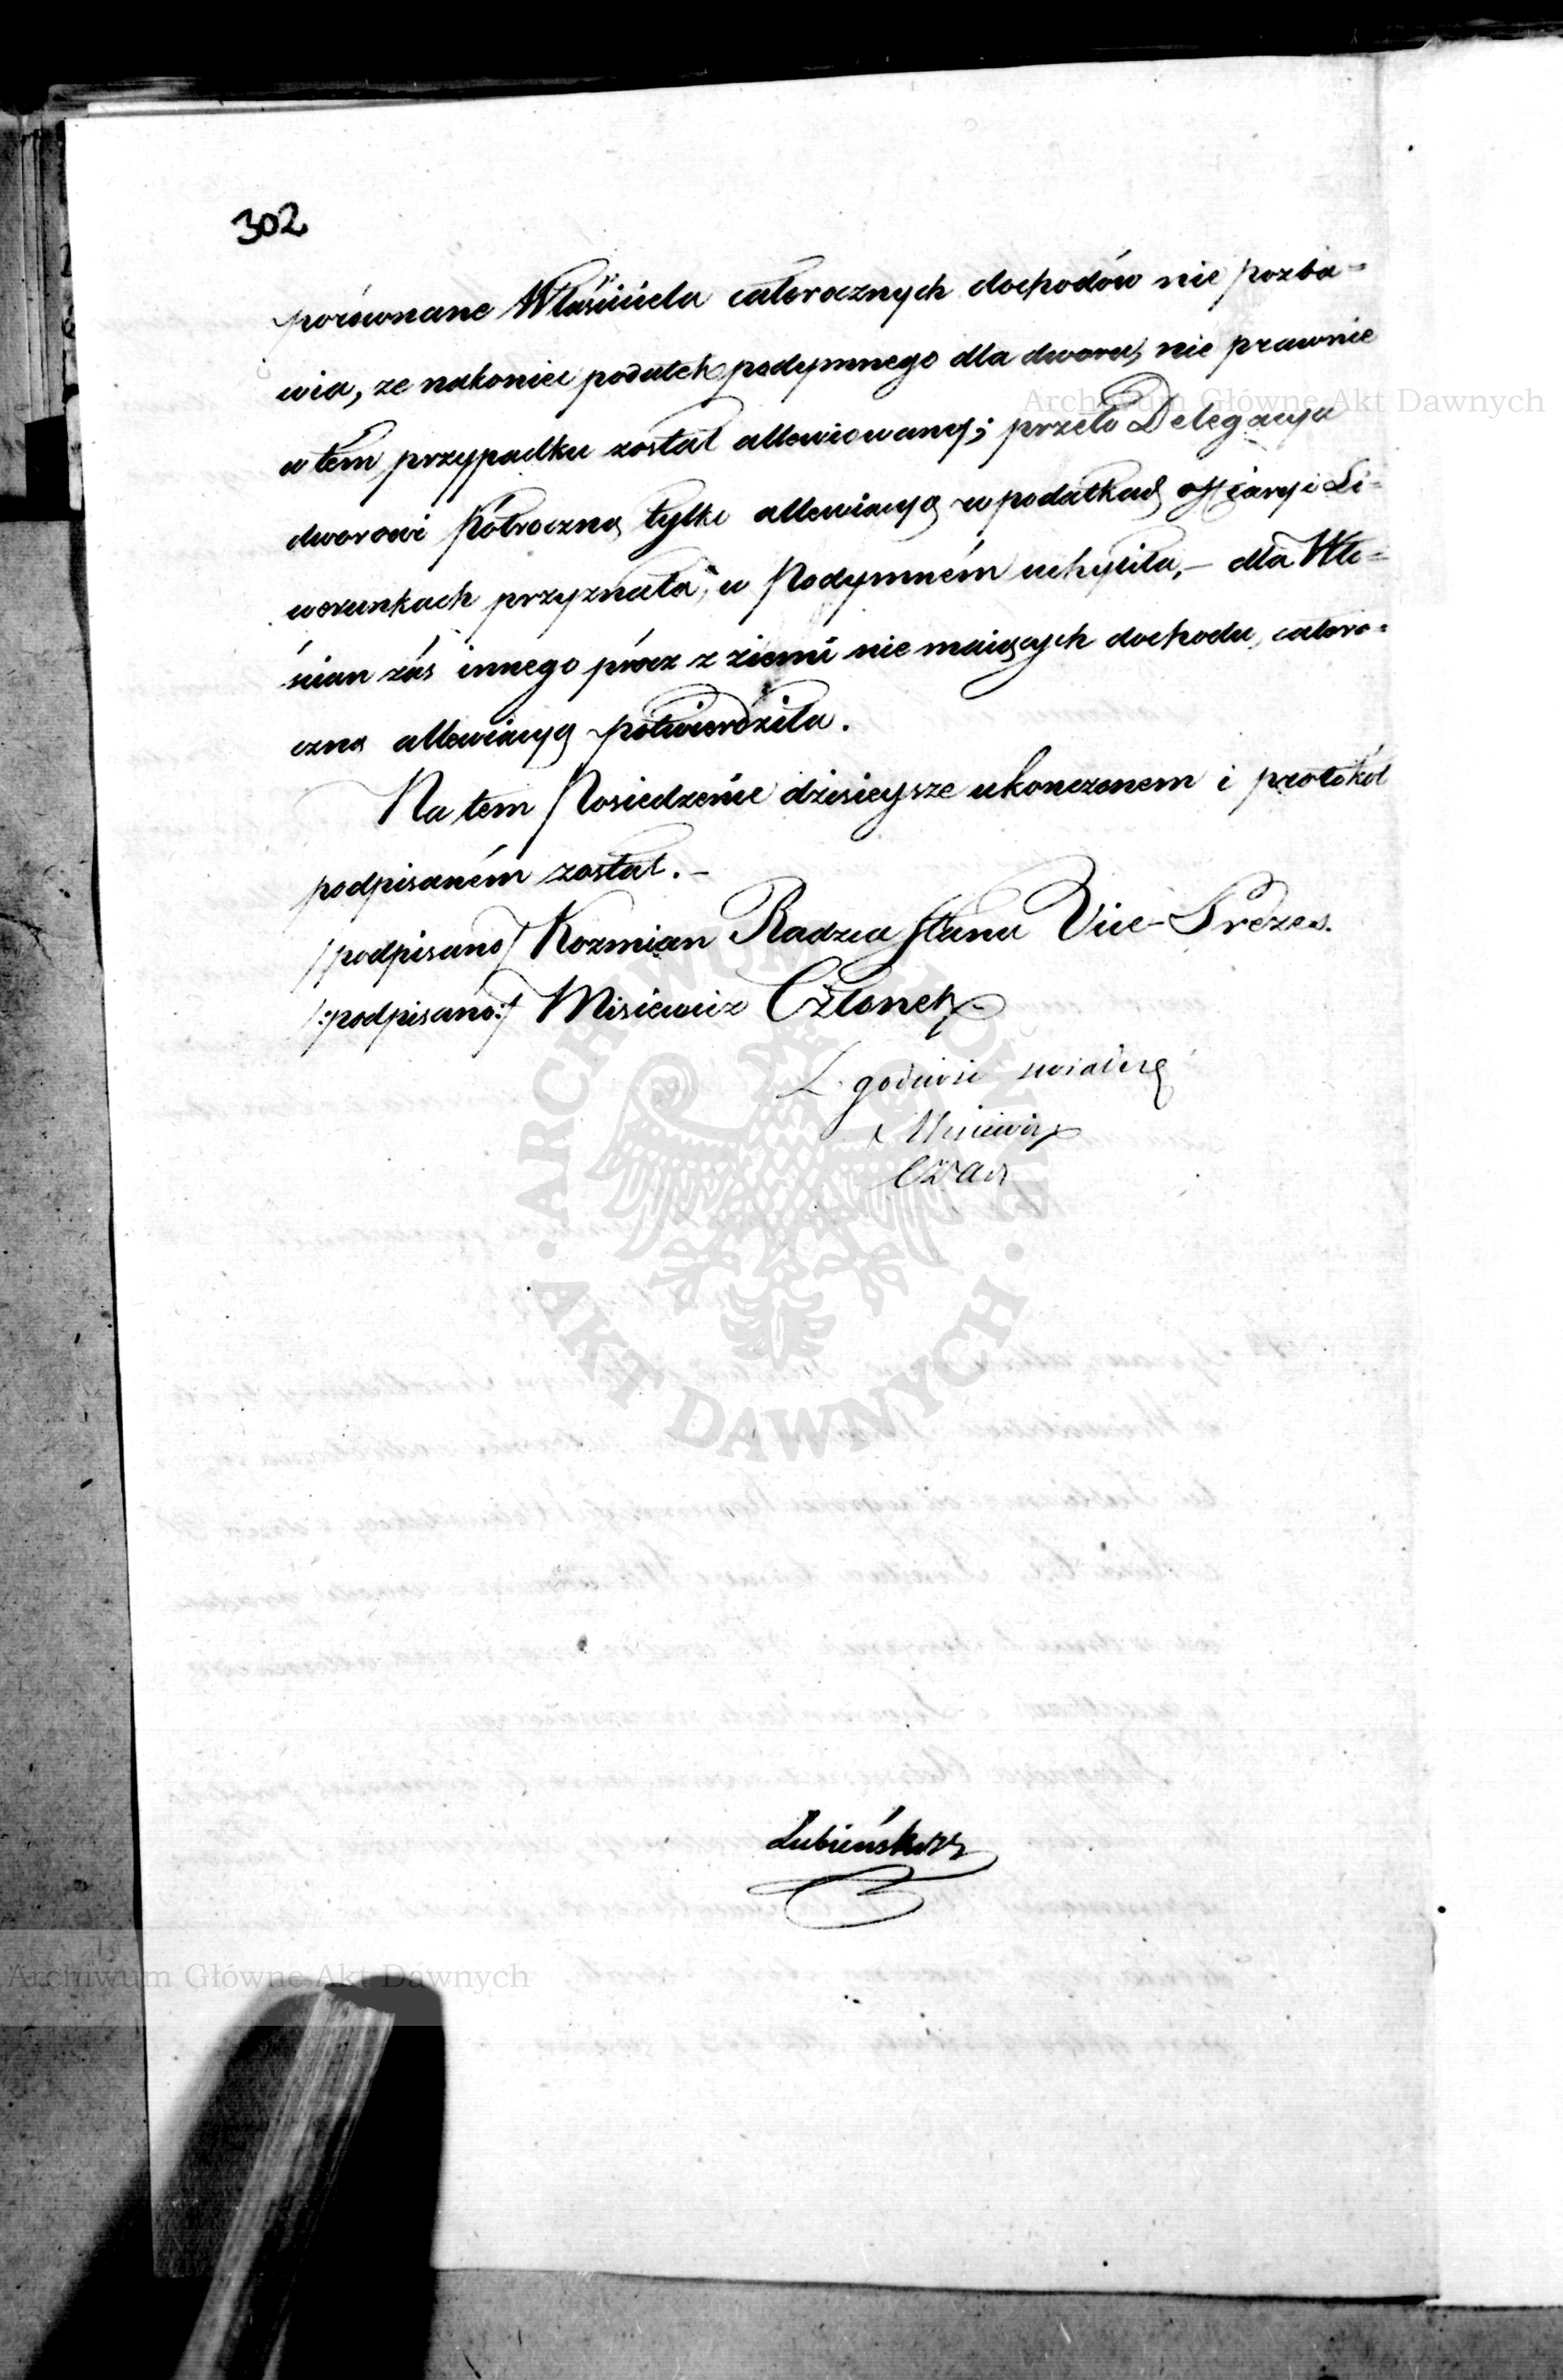 302
porównane Właściciela całorocznych dochodów nie pozba=
wia, ze nakoniec podatek podymnego dla dworu, nie prawnie
w tem przypadku został allewiowany; przeto Delegacya
dworowi Półroczną tylko allewiacyą w podatkach offiary i Li=
werunkach przyznała, w Podymném uchyliła, – dla Wło=
ścian zaś innego prócz z ziemi nie maiących dochodu, całoro=
czną allewiacyą potwierdziła.
Na tem Posiedzenie dzisieysze ukonczonem i protokół
podpisaném został. –
/podpisano/ Kozmian Radzca Stanu Vice-Prezes.
/:podpisano:/ Misiewicz Członek
Z godność swiadczę
Misiewicz
Łubieński
Archiwum Główne Akt Dawnych
Archiwum Główne Akt Dawnych
ARCHIWUM GŁÓWNE · AKT DAWNYCH ·